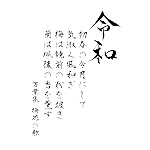 令和
初春の令月にして
気淑く風和ぎ
梅は鏡前の粉を披き
蘭は珮後の香を薫す
万葉集 梅花の歌